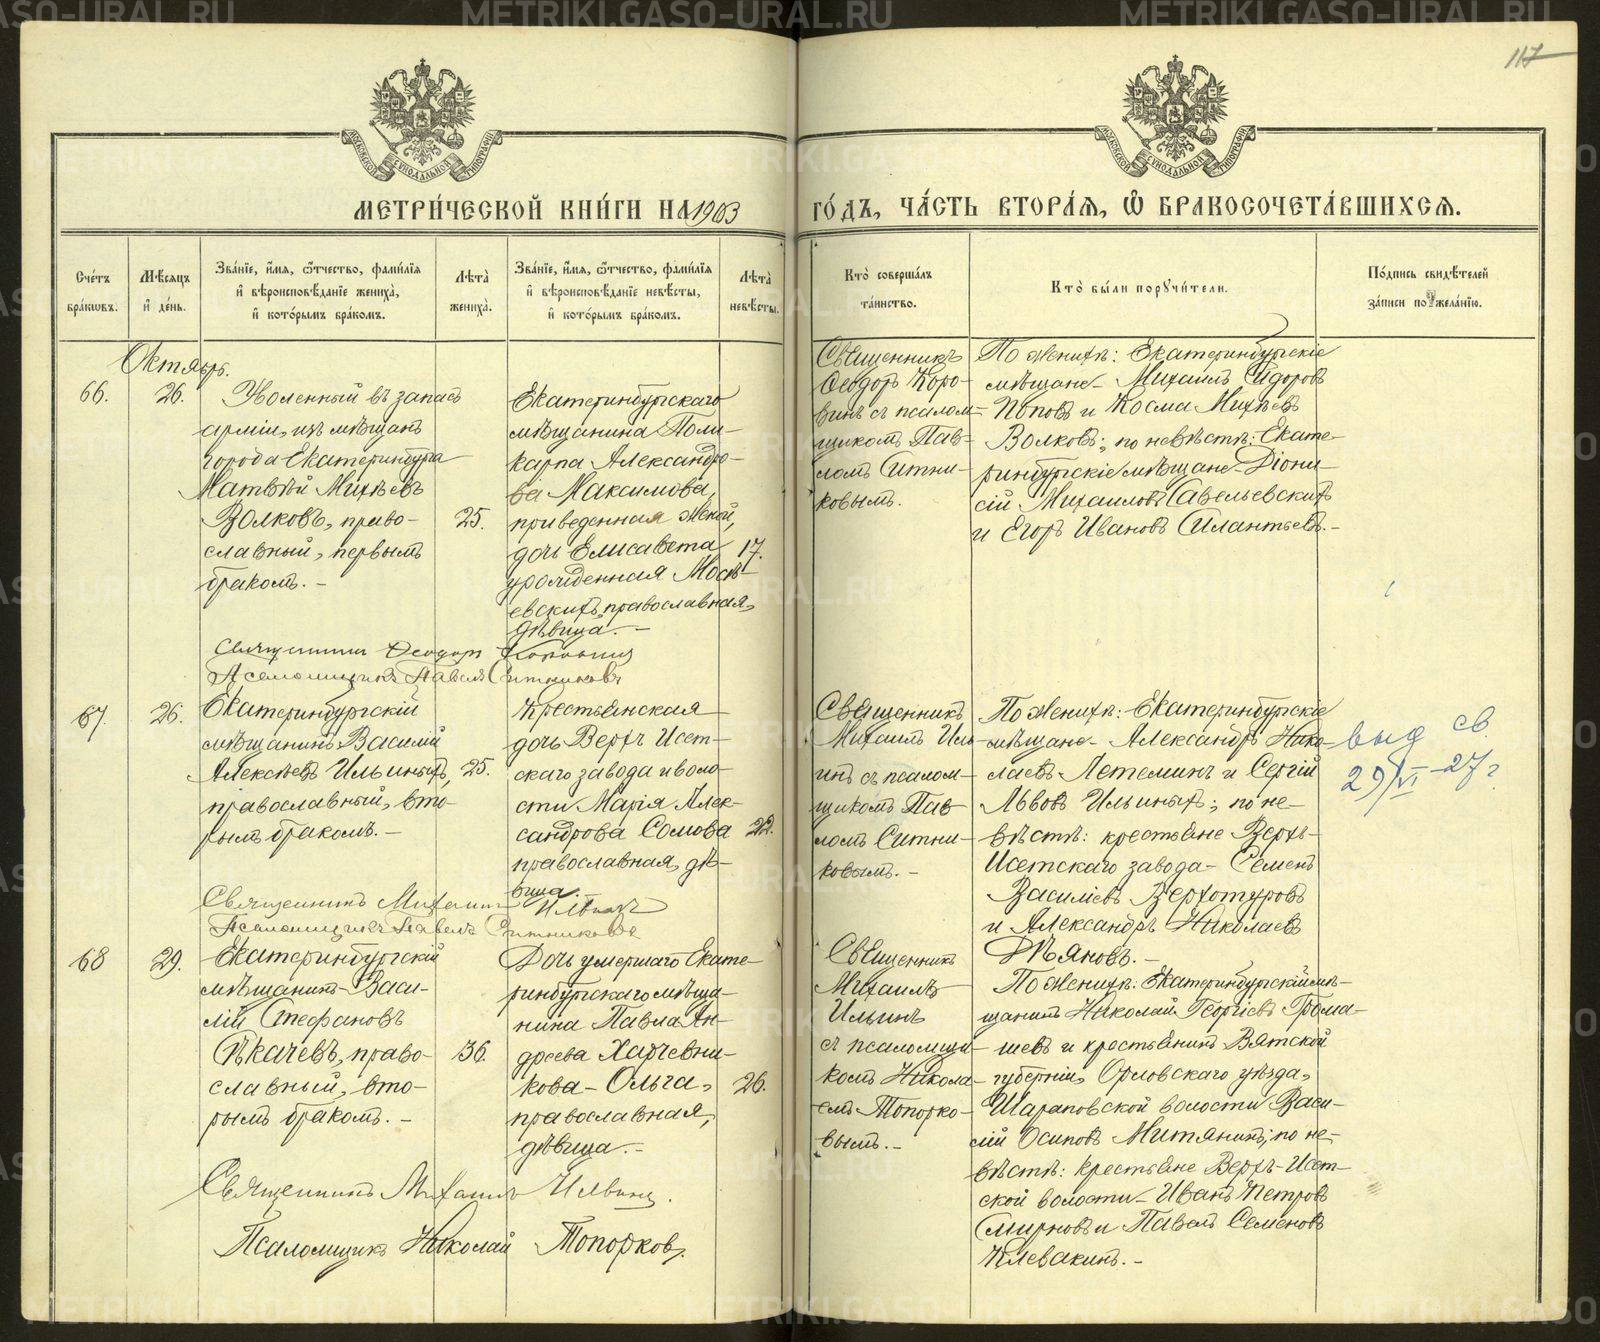 117
МЕТРИ́ЧЕСКОЙ КНИ́ГИ НА 1903
ГО́ДЪ, ЧА́СТЬ ВТОРА́Я, Ѡ҆ БРАКОСОЧЕТА́ВШИХСЯ.
Сче́тъ бра́кѡвъ.
Мѣ́сяцъ и҆ де́нь.
Зва́нїе, и҆́мя, ѻ҆́тчество, фами́лїя и҆ вѣроисповѣ́данїе жениха̀, и҆ кото́рымъ бра́комъ.
Лѣ́та̀ жениха̀.
Зва́нїе, и҆́мя, ѻ҆́тчество, фами́лїя и҆ вѣроисповѣ́данїе невѣ́сты, и҆ кото́рымъ бра́комъ.
Лѣ́та̀ невѣ́сты.
Кто̀ соверша́лъ та́инство.
Кто̀ бы́ли порꙋчи́тели.
По́дпись свидѣ́телей за́писи по жела́нїю.
Октябрь.
66.
26.
Уволенный въ запасъ
арміи, изъ мѣщанъ
города Екатеринбурга
Матвѣй Михѣевъ
Волковъ, право-
славный, первымъ
бракомъ. -
25.
Екатеринбургскаго
мѣщанина Поли-
карпа Александро-
ва Максимова,
приведенная женой,
дочь Елисавета
урожденная Мосѣ-
евскихъ, православная,
дѣвица. -
17.
Священникъ
Ѳеодоръ Коро-
винъ съ псалом-
щикомъ Пав-
ломъ Ситни-
ковымъ.
По женихѣ: Екатеринбургскіе
мѣщане - Михаилъ Сидоровъ
Поповъ и Косма Михѣевъ
Волковъ; по невѣстѣ: Екате-
ринбургскіе мѣщане - Діони-
сій Михаиловъ Савельевскихъ
и Егоръ Ивановъ Силантьевъ. -
Священникъ Ѳеодоръ Коровинъ
Псаломщикъ Павелъ Ситниковъ
67.
26.
Екатеринбургскій
мѣщанинъ Василій
Алексѣевъ Ильиныхъ,
православный, вто-
рымъ бракомъ. -
25.
Крестьянская
дочь Верхъ-Исет-
скаго завода и воло-
сти Марія Алек-
сандрова Сомова
православная, дѣ-
вица. -
22.
Священникъ
Михаилъ Иль-
инъ съ псалом-
щикомъ Пав-
ломъ Ситни-
ковымъ. -
По женихѣ: Екатеринбургскіе
мѣщане - Александръ Нико-
лаевъ Летеминъ и Сергій
Львовъ Ильиныхъ; по не-
вѣстѣ: крестьяне Верхъ-
Исетскаго завода - Семенъ
Василіевъ Верхотуровъ
и Александръ Николаевъ
Дѣяновъ. -
выд св.
29/VI - 27 г.
Священникъ Михаилъ Ильинъ
Псаломщикъ Павелъ Ситниковъ
68
29.
Екатеринбургскій
мѣщанинъ Васи-
лій Стефановъ
Сѣкачевъ, право-
славный, вто-
рымъ бракомъ. -
36.
Дочь умершаго Екате-
ринбургскаго мѣща-
нина Павла Ан-
дреева Харчевни-
кова - Ольга,
православная,
дѣвица. -
26.
Священникъ
Михаилъ
Ильинъ
съ псаломщи-
комъ Никола-
емъ Топорко-
вымъ. -
По женихѣ: Екатеринбургскій мѣ-
щанинъ Николай Георгіевъ Грома-
шевъ и крестьянинъ Вятской
губерніи, Орловскаго уѣзда,
Шараповской волости Васи-
лій Осиповъ Митянинъ; по не-
вѣстѣ: крестьяне Верхъ-Исет-
ской волости - Иванъ Петровъ
Смирновъ и Павелъ Семеновъ
Клевакинъ. -
Священникъ Михаилъ Ильинъ.
Псаломщикъ Николай Топорковъ.